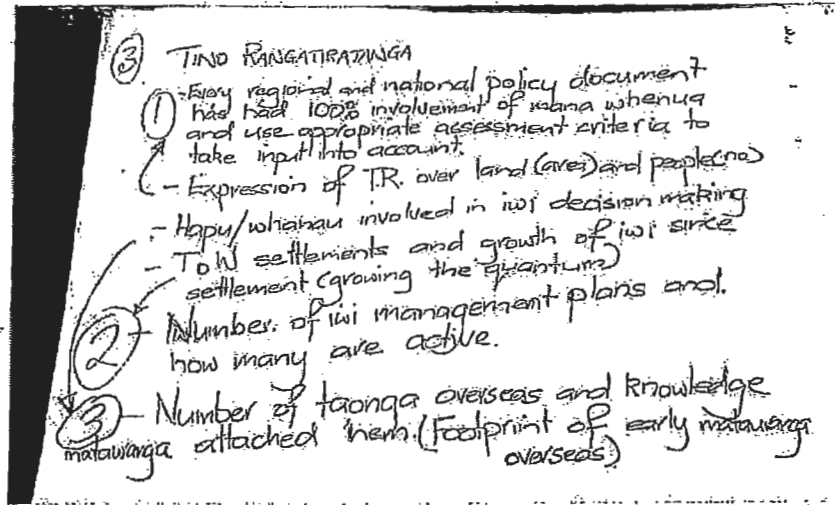 ③ TINO RANGATIRATANGA
① - Every regional and national policy document
has had 100% involvement of mana whenua
and use appropriate assessment criteria to
take input into account.
- Expression of T.R. over land (area) and people (no)
- Hapu/whanau involved in iwi decision making
- ToW settlements and growth of iwi since
settlement (growing the quantum)
② - Number of iwi management plans and
how many are active.
③ - Number of taonga overseas and knowledge
matauranga attached hem. (Footprint of early matauranga
overseas)